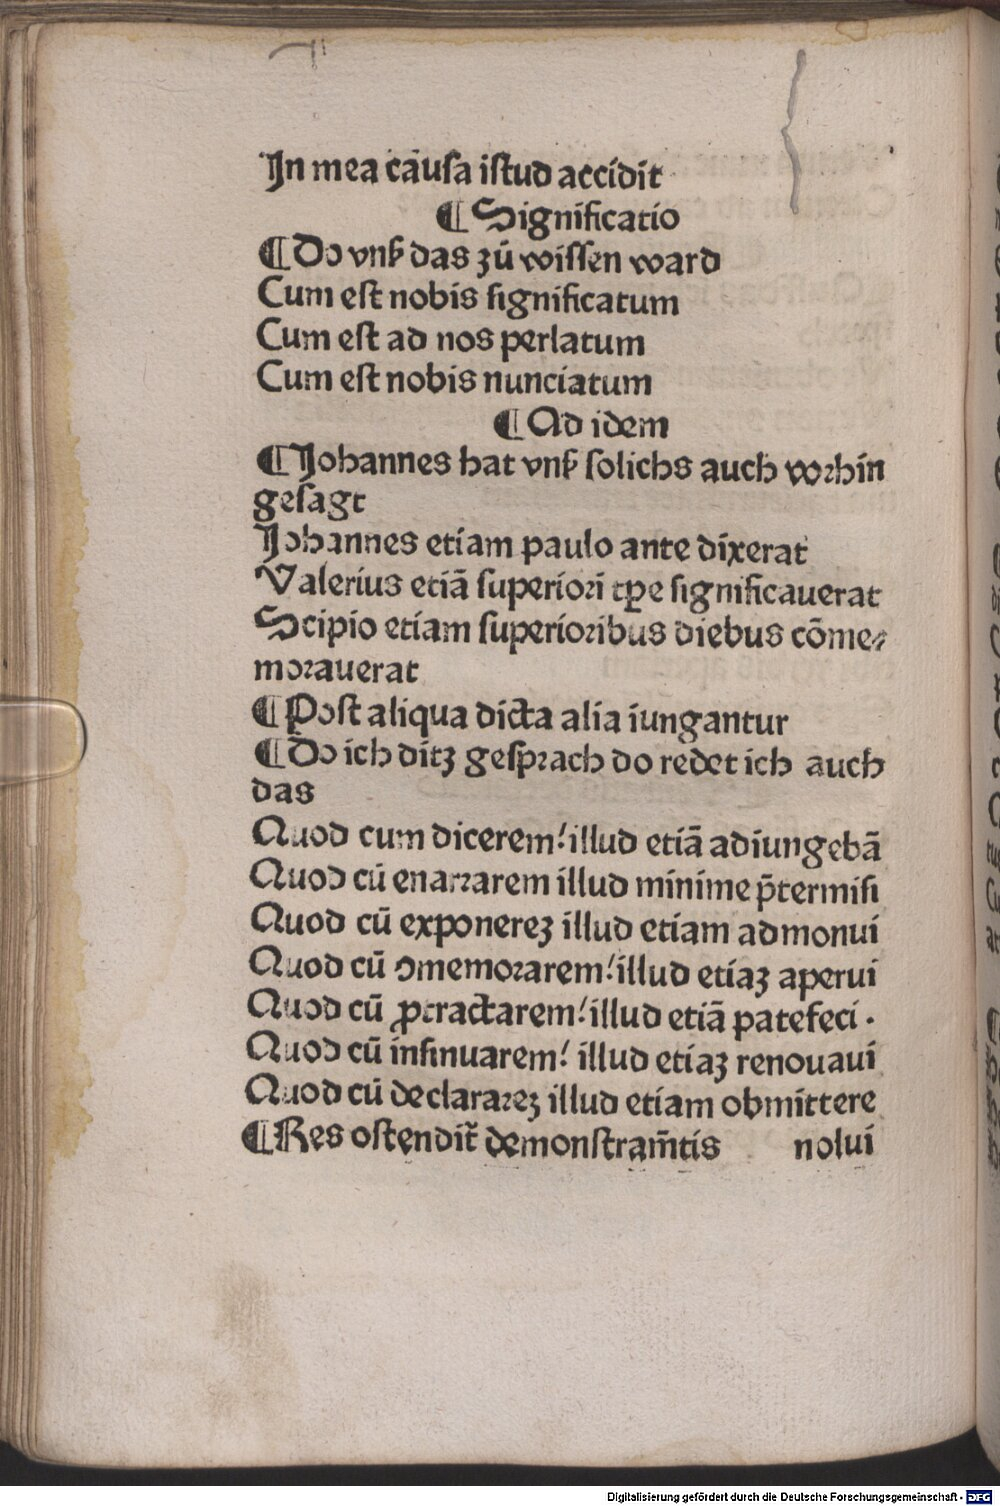 In mea causa istud accidit
¶ Significatio
¶ Do vnß das zů wissen ward
Cum est nobis significatum
Cum est ad nos perlatum
Cum est nobis nunciatum
¶ Ad idem
¶ Johannes hat vnß solichs auch vorhin
gesagt
Johannes etiam paulo ante dixerat
Valerius etiã superiori tꝑe significauerat
Scipio etiam superioribus diebus cõme⸗
morauerat
¶ Post aliqua dicta alia iungantur
¶ Do ich ditz gesprach do redet ich auch
das
Quod cum dicerem/ illud etiã adiungebã
Quod cũ enarrarem illud minime p̃termisi
Quod cũ exponereʒ illud etiam admonui
Quod cũ ꝯmemorarem/ illud etiaʒ aperui
Quod cũ ꝓtractarem/ illud etiã patefeci .
Quod cũ insinuarem/ illud etiaʒ renouaui
Quod cũ declarareʒ illud etiam obmittere
¶ Res ostendit̃ demonstram̃tis nolui
Digitalisierung gefördert durch die Deutsche Forschungsgemeinschaft - DFG